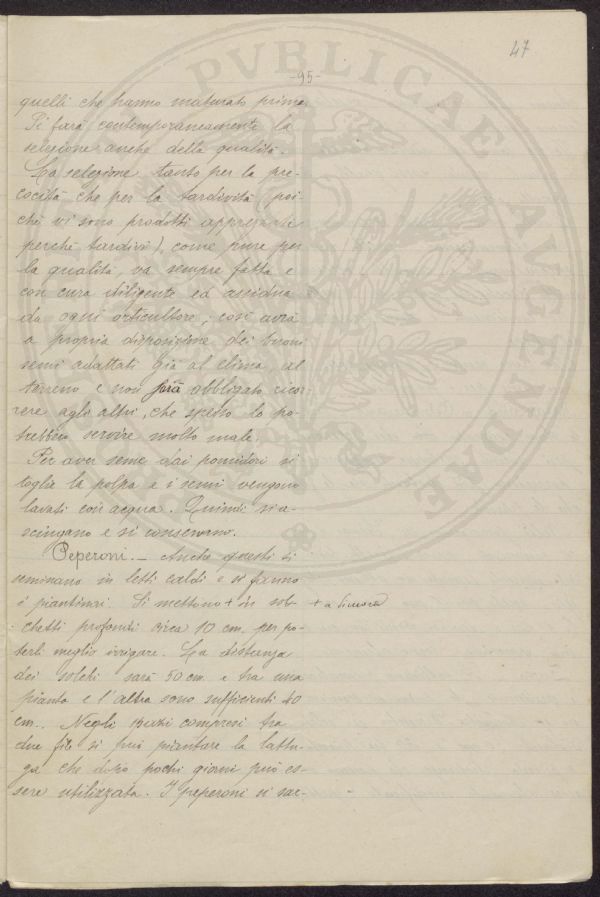 47
-95-
quelli che hanno maturato prima.
Si farà contemporaneamente la
selezione anche della qualità.
La selezione, tanto per la pre-
cocità che per la tardività (poi
chè vi sono prodotti apprezzati
perchè tardivi), come pure per
la qualità, va sempre fatta e
con cura diligente ed assidua
da ogni orticultore; così avrà
a propria disposizione dei buoni
semi adattati già al clima al
terreno e non sarà obbligato ricor-
rere agli altri, che spesso lo po-
trebbero servire molto male.
Per aver seme dai pomidori si
toglie la polpa e i semi vengono
lavati con acqua. Quindi si a-
sciugano e si conservano.
Peperoni. - Anche questi si
seminano in letti caldi e si fanno
i piantinai. Si mettono + in sol-
+ a dimora
chetti profondi circa 10 cm. per po-
terli meglio irrigare. La distanza
dei solchi sarà 50 cm. e tra una
pianta e l'altra sono sufficienti 40
cm. Negli spazi compresi tra
due file si può piantare la lattu-
ga che dopo pochi giorni può es-
sere utilizzata. I peperoni si rac-
PVBLICAE AVGENDAE